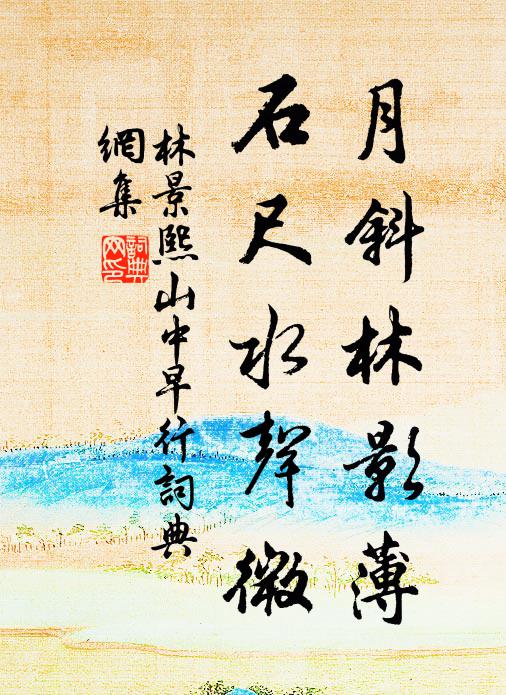 月斜林影薄
石尺水聲微
林景熙山中早行詞典
網集
詞典
网印